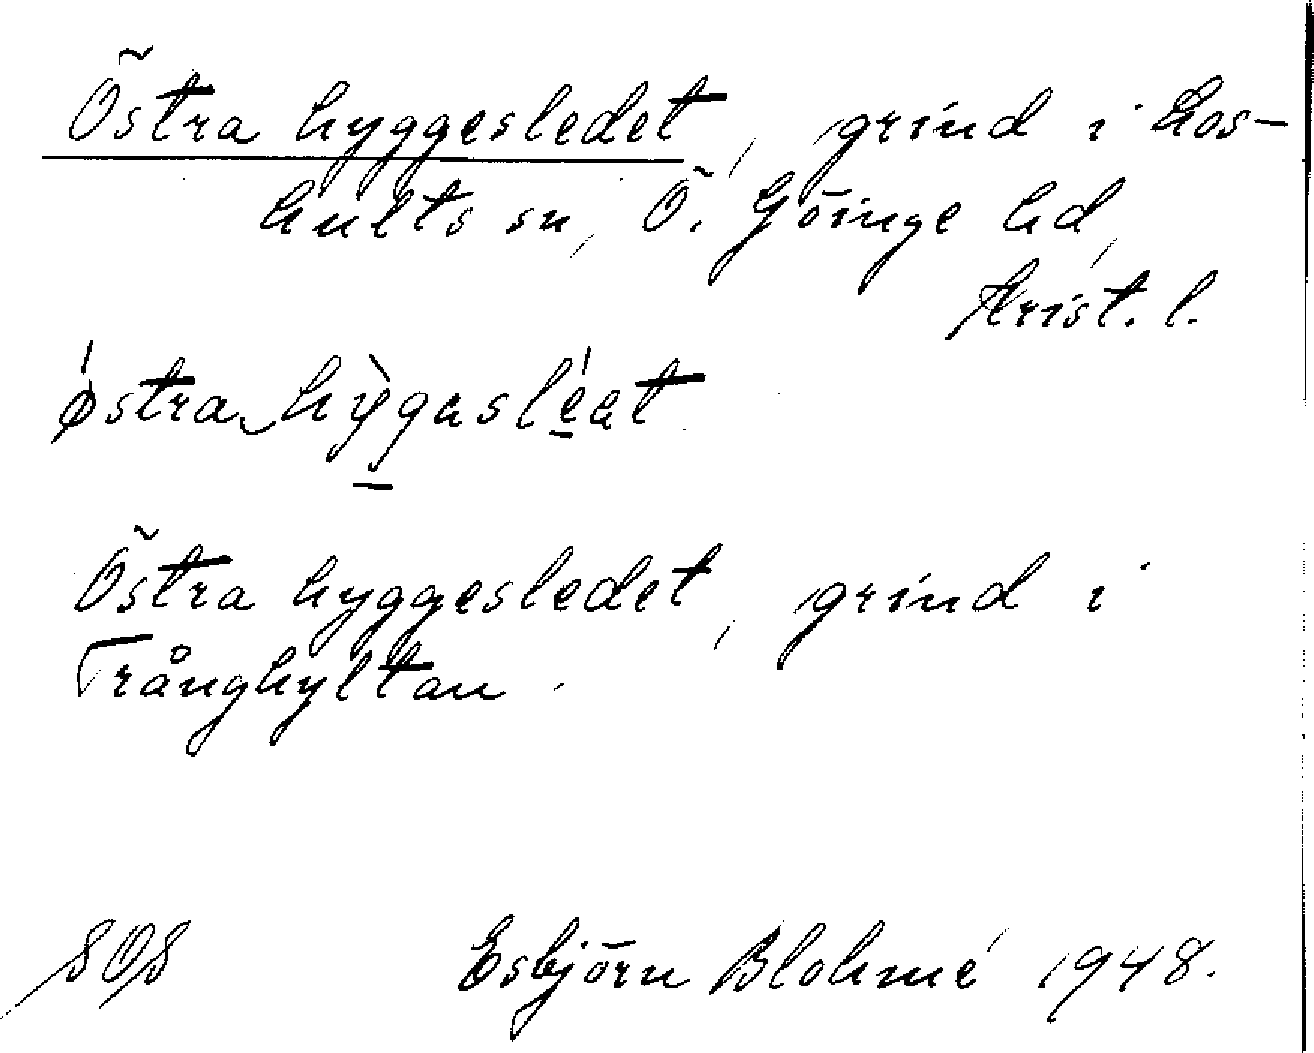 Östra hyggesledet, grind i Los-
hults sn, Ö. Göinge hd,
Krist. l.
ǿstra‿hỳgasléat
Östra hyggesledet, grind i
Trånghyltan.
SOS Esbjörn Blohmé 1948.